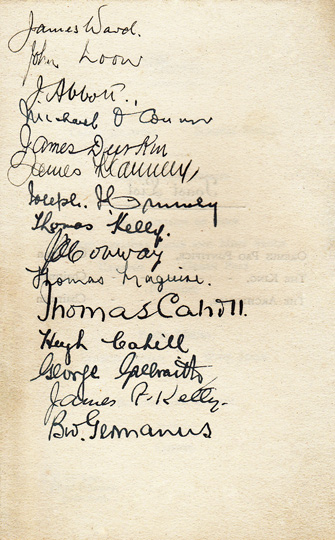 James Ward.
John
J. Abbott.,
Michael O'Connor
James Durkin
James Flannery,
Joseph.
Thomas Kelly.
Conway
Thomas Maguire.
Thomas Cahill.
Hugh Cahill
George Galbraith,
James F. Kelly.
Bro. Germanus